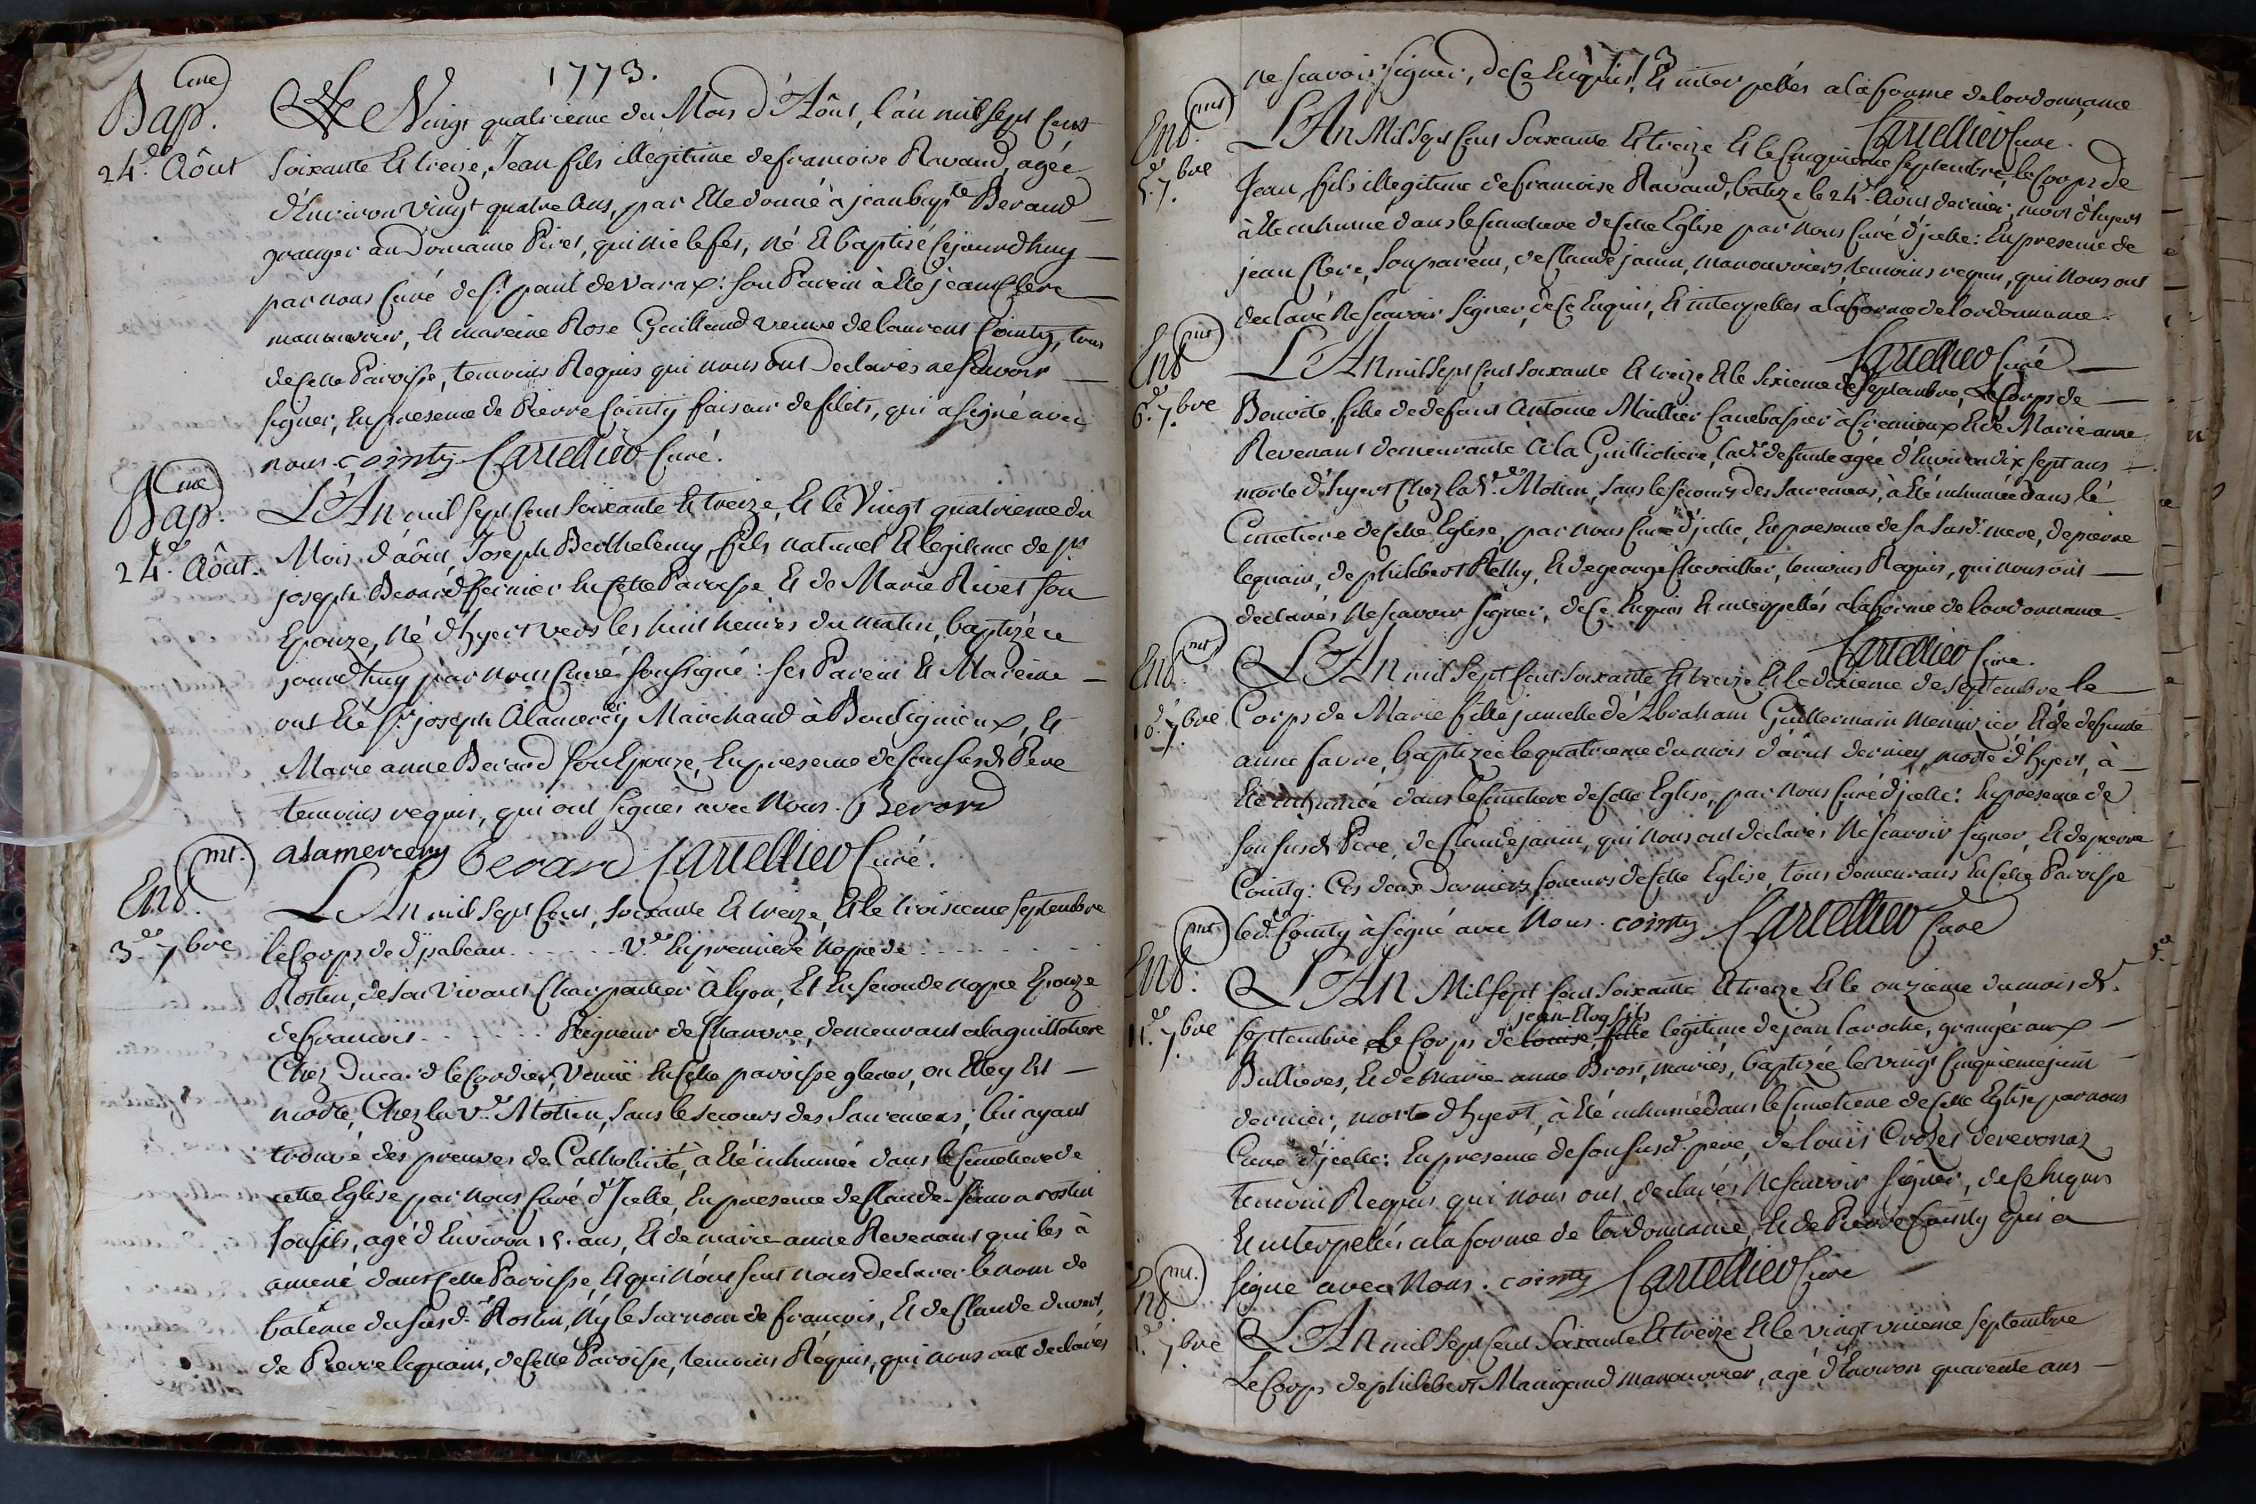 1773.
Bap.me
24.e Aôut
Le Vingt quatrieme du Mois d'Aôut, l'an mil sept cent
soixante et treize, Jean fils illegitime de francoise Ravaud, agée
d'Environ vingt quatre ans, par Elle donné à jean bap.te Beraud
granger au Domaine Piret, qui nie le fet, né et baptisé cejourdhuy
par nous Curé de S.t paul de varax: son Parein à eté jean Clere
manouvrier, et mareine Rose Gaillaud veuve de laurent Cointy, tous
de cette Paroisse, temoins Requis qui nous ont Declarés ne scavoir
signer, En presence de Pierre Cointy faiseur de filets, qui a signé avec
nous. cointy Cartellier Curé.
Bap.me
24.e Aôut.
L'An mil sept cent soixante et treize, et le vingt quatrieme du
Mois d'aôut, Joseph Berthelemy fils naturel et legitime de s.r
joseph Berard fermier en cette Paroisse et de Marie Rivet son
Epouze, né d'hyert vers les huit heures du matin, baptizé ce
jourdhuy par nous Curé soussigné: ses Parein et Mareine
ont eté s.r joseph Alamercery Marchand à Bouligneux, et
Marie anne Berard son Epouze, En presence de son susd. Pere
temoins requis, qui ont signés avec Nous. Berard
alamercery berard Cartellier Curé.
Ent.mt
3.e 7bre
L'An mil sept cent, soixante et treize, et le troisieme septembre
le Corps de d'ysabeau . . . . . . V.e En premiere nopce de . . . . . .
Rostin, de son vivant Charpentier à lyon, et En seconde nopce Epouze
de francois . . . . . . Peigneur de Chanvre, demeurant a la guillotiere
Chez Ducard le Cordier, Venüe En cette paroisse glener, ou Elle y est
morte, Chez la V.e Mottin, sans le secours des sacremens, lui ayant
trouvé des preuves de Catholicité, à eté inhumée dans le Cimetiere de
cette Eglise par nous Curé d'Icelle, En presence de Claude rostin
son fils, agé d'Environ 15. ans, et de marie anne Revenant qui les à
amené dans cette Paroisse, et qui n'ont scut nous declarer le nom de
batême du susd. Rostin, ny le surnom de francois, et de Claude durort,
de Pierre lequain, de cette Paroisse, temoins Réquis, qui nous ont declarés
1773
ne scavoir signer, de ce Enquis, et interpellés a la forme de lordonnance
Cartellier Curé.
Ent.mt
5.e 7bre
L'An Mil sept Cent soixante et treize et le Cinquieme septembre, le Corps de
Jean, fils illegitime de francoise Ravaud, batizé le 24.e Aôut dernier, mort d'hyert
à eté inhumé dans le Cimetiere de cette Eglise par nous Curé d'jcelle: En presence de
jean Clere, son parein, de Claude janin, manouvriers temoins requis, qui nous ont
declaré ne scavoir signer, de ce Enquis, et interpellés a la forme de lordonnance.
Cartellier Curé
Ent.mt
6.e 7bre
L'An mil sept cent soixante et treize et le sixieme de septembre, le Corps de
Benoite, fille de defunt Antoine Maillier Cambassier à Cremieux et de Marie anne
Revenant demeurante à la Guillotiere, lad. defunte agée d'Environ dix sept ans
morte d'hyert Chez la V.e Mottin, sans le secours des sacremens, à eté inhumée dans le
Cimetiere de cette Eglise, par nous Curé d'jcelle, En presence de sa susd. mere, de pierre
lequain, de philibert Rethy, et de george Chevailler, temoins Requis, qui nous ont
declarés ne scavoir signer, de ce Enquis et interpellés a la forme de lordonnance
Cartellier Curé.
Ent.mt
10.e 7bre
L'An mil sept cent soixante et treize et le dixieme de septembre le
Corps de Marie fille jumelle de Abraham Guillermain Meunier, et de defunte
anne favre, baptizée le quatrieme du mois d'aôut dernier, morte d'hyert, à
eté inhumée dans le Cimetiere de cette Eglise, par nous Curé d'jcelle: En presence de
son susd. Pere, de Claude janin, qui nous ont declarés ne scavoir signer, et de pierre
Cointy: Ces deux Derniers soneurs de cette Eglise, tous demeurans En cette Paroisse
led. Cointy à signé avec Nous. cointy Cartellier Curé
Ent.mt
11.e 7bre
L'An Mil sept Cent soixante et treize et le onzieme du mois de
jean-Eloy fils
septtembre, Le Corps de louise, fille legitime de jean laroche, granger aux
Bullieres, et de Marie-anne Brost, mariés, baptizée le vingt Cinquieme juin
dernier, morte d'hyert, à eté inhumé dans le Cimetiere de cette Eglise par nous
Curé d'jcelle: En presence de son susd. pere, de louis Crozet de revonaz
temoins Requis qui nous ont declarés ne scavoir signer, de ce Enquis
et interpellés a la forme de lordonnance, et de Pierre Cointy qui a
signé avec Nous. cointy Cartellier Curé
Ent.mt
7bre
L'An mil sept cent soixante et treize et le vingt unieme septembre
Le Corps de philibert Manigand manouvrier, agé d'Environ quarente ans